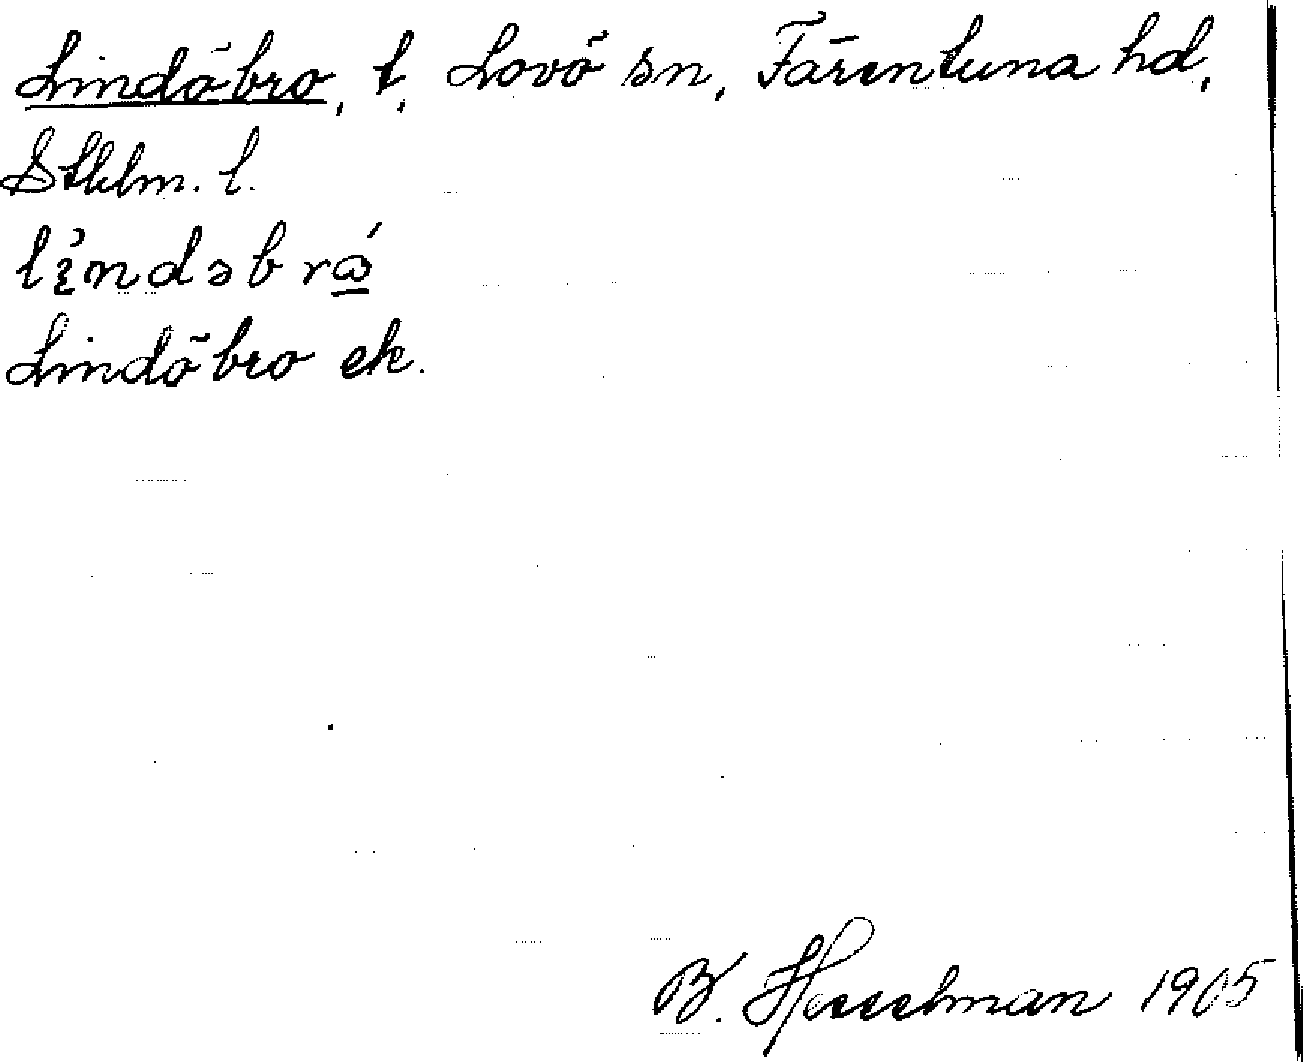 Lindöbro, t, Lovö sn, Färentuna hd,
Sthlm. l.
Lindöbro ek.
B. Hesselman 1905